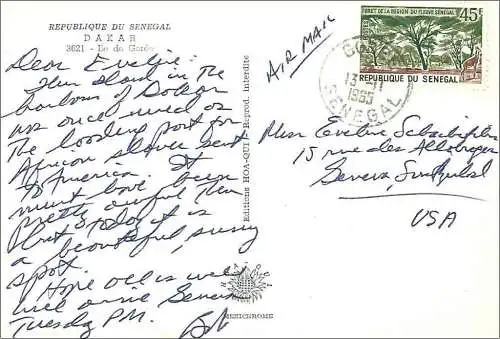 REPUBLIQUE DU SENEGAL
DAKAR
3621 - Ile de Gorée
Dear Eveline:
This island in the
harbour of Dakar
was once used as
the loading port for
African slaves sent
to America. It
must have been
pretty awful then
but today it is
a beautiful, sunny
spot.
Hope all is well
will arrive Geneva
Tuesday P.M.
Bob
Editions HOA-QUI Reprod. Interdite
MEXICHROME
AIR MAIL
FORET DE LA REGION DU FLEUVE SENEGAL
45F
POSTES
REPUBLIQUE DU SENEGAL
13 -11
1965
SENEGAL
Miss Eveline
15 rue des Allobroges
Geneva, Switzerland
USA